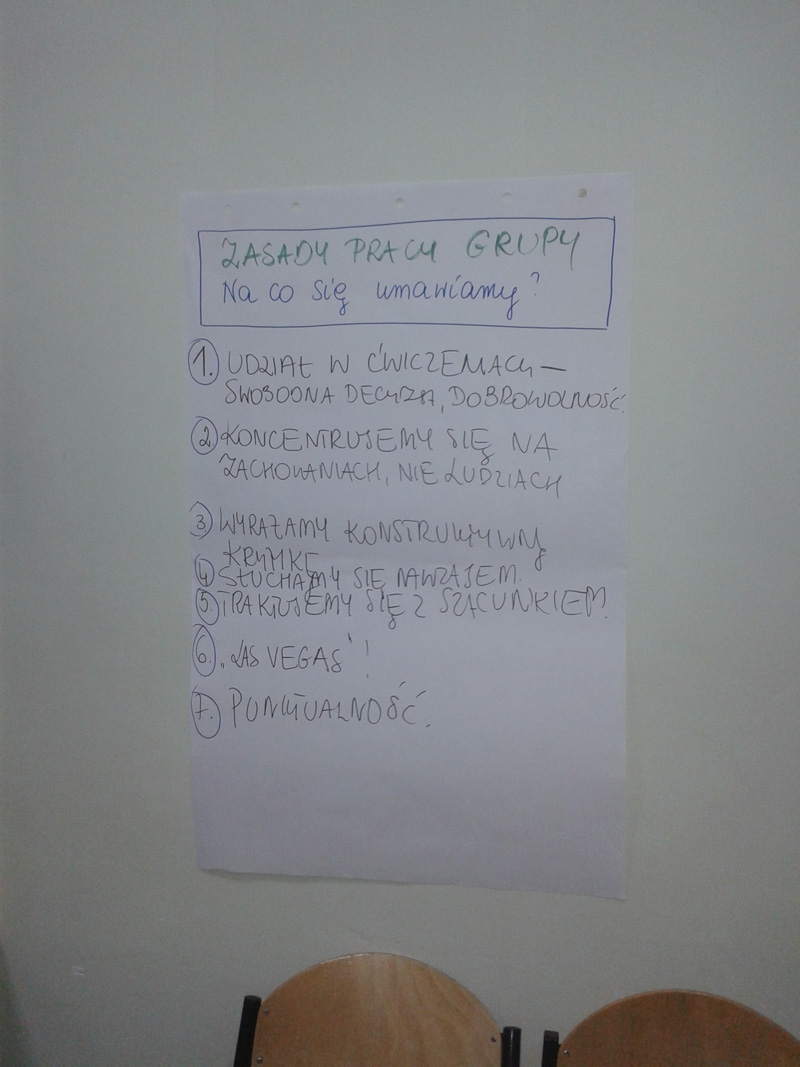 ZASADY PRACY GRUPY
Na co się umawiamy?
1. UDZIAŁ W ĆWICZENIACH –
SWOBODNA DECYZJA, DOBROWOLNOŚĆ.
2. KONCENTRUJEMY SIĘ NA
ZACHOWANIACH, NIE LUDZIACH
3. WYRAŻAMY KONSTRUKTYWNĄ
KRYTYKĘ
4. SŁUCHAMY SIĘ NAWZAJEM.
5. TRAKTUJEMY SIĘ Z SZACUNKIEM.
6. „LAS VEGAS"!
7. PUNKTUALNOŚĆ.